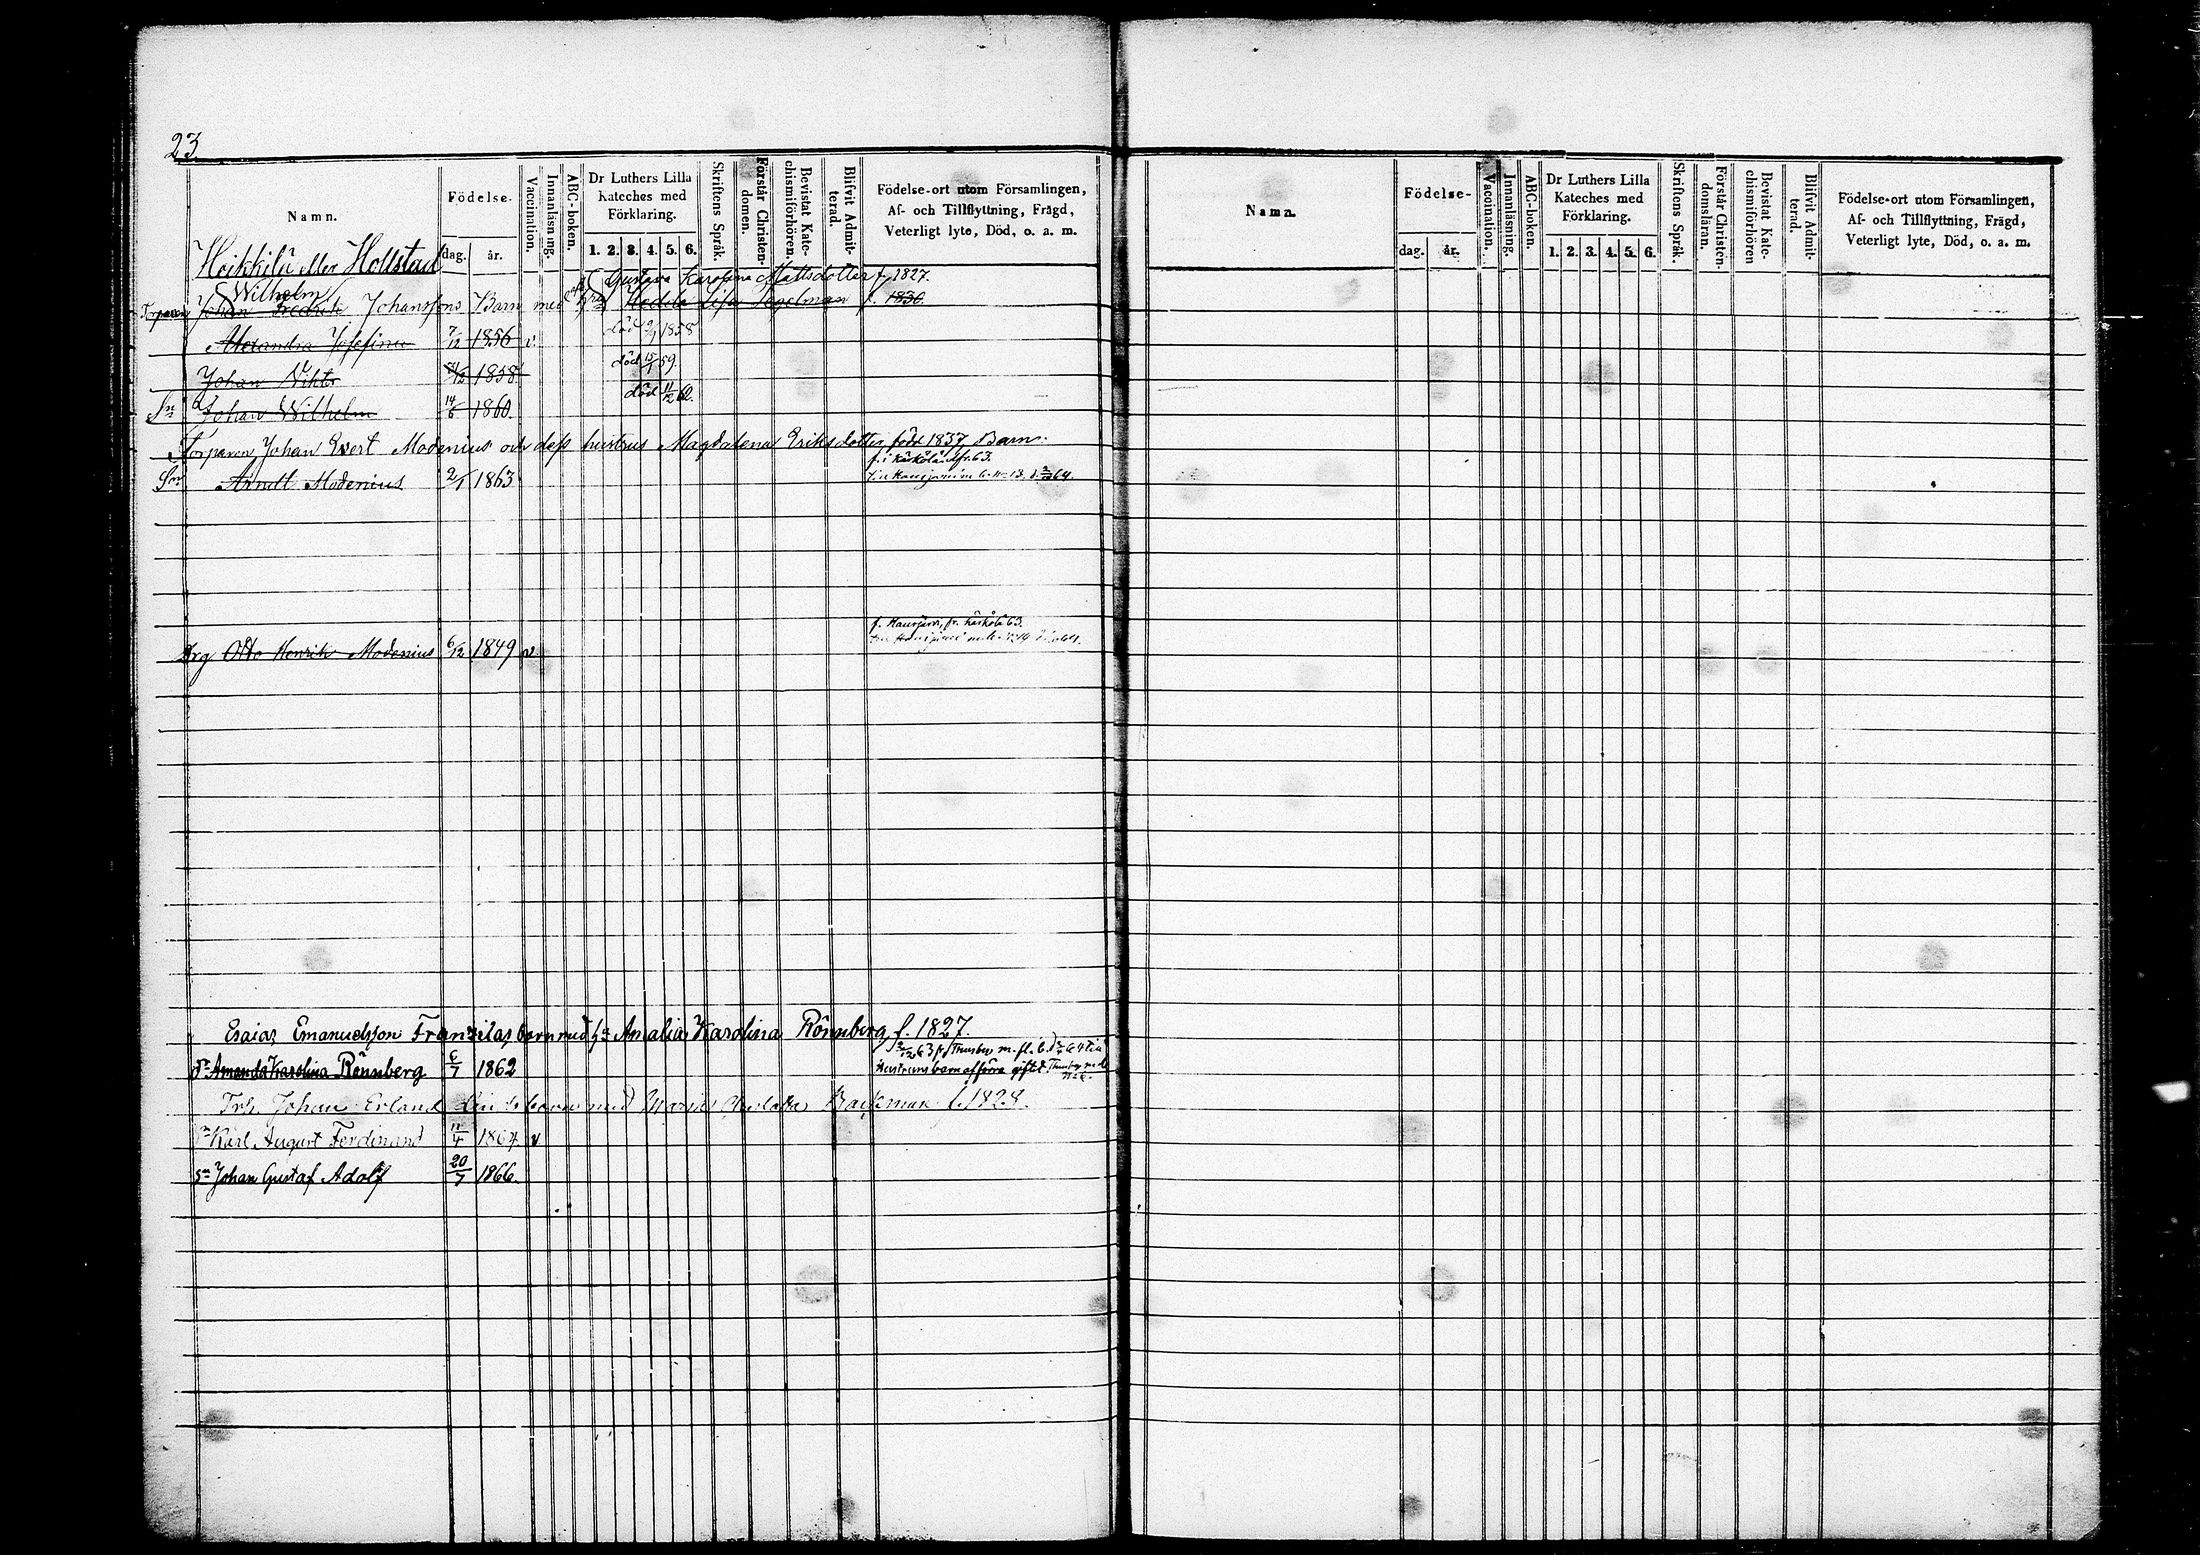 23.
Namn.
Födelse-
dag.
år.
Vaccination.
Innanläsning.
ABC-boken.
Dr Luthers Lilla
Kateches med
Förklaring.
1. 2. 3. 4. 5. 6.
Skriftens Språk.
Förstår Christen-
domen.
Bevistat Kate-
chismiförhören.
Blifvit Admit-
terad.
Födelse-ort utom Församlingen,
Af- och Tillflyttning, Frägd,
Veterligt lyte, Död, o. a. m.
Heikkilä eller Hollstad
Gustava Karolina Mattsdotter f. 1827.
Wilhelm
Torparen Johan Fredrik Johanssons Barn med Hedda Lisa Segelman f. 1830.
Alexandra Josefina 7/12 1856 v. död 1858
Johan Viktor 1858 död 15/1 59.
Sn Johan Wilhelm 14/6 1860. död 11/12 62.
Torparen Johan Evert Modenius och dess hustrus Magdalena Eriksdotter, född 1837, Barn.
Sn Arndt Modenius 2/1 1863
f. Hausjärvi, fr. Kärkölä 63.
Drg Otto Henrik Modenius 6/12 1849 v.
Esaias Emanuelsson Franzilas barn med h. Amalia Karolina Rönnberg, f. 1827.
Amanda Karolina Rönnberg 6/7 1862
hustruns barn af förra giftet.
Johan Erland barn med Maria f. 1828.
Sn Karl August Ferdinand 11/4 1864. v
Sn Johan Gustaf Adolf 20/7 1866.
Namn.
Födelse-
dag.
år.
Vaccination.
Innanläsning.
ABC-boken.
Dr Luthers Lilla
Kateches med
Förklaring.
1. 2. 3. 4. 5. 6.
Skriftens Språk.
Förstår Christen-
domsläran.
Bevistat Kate-
chismiförhören
Blifvit Admit-
terad.
Födelse-ort utom Församlingen,
Af- och Tillflyttning, Frägd,
Veterligt lyte, Död, o. a. m.